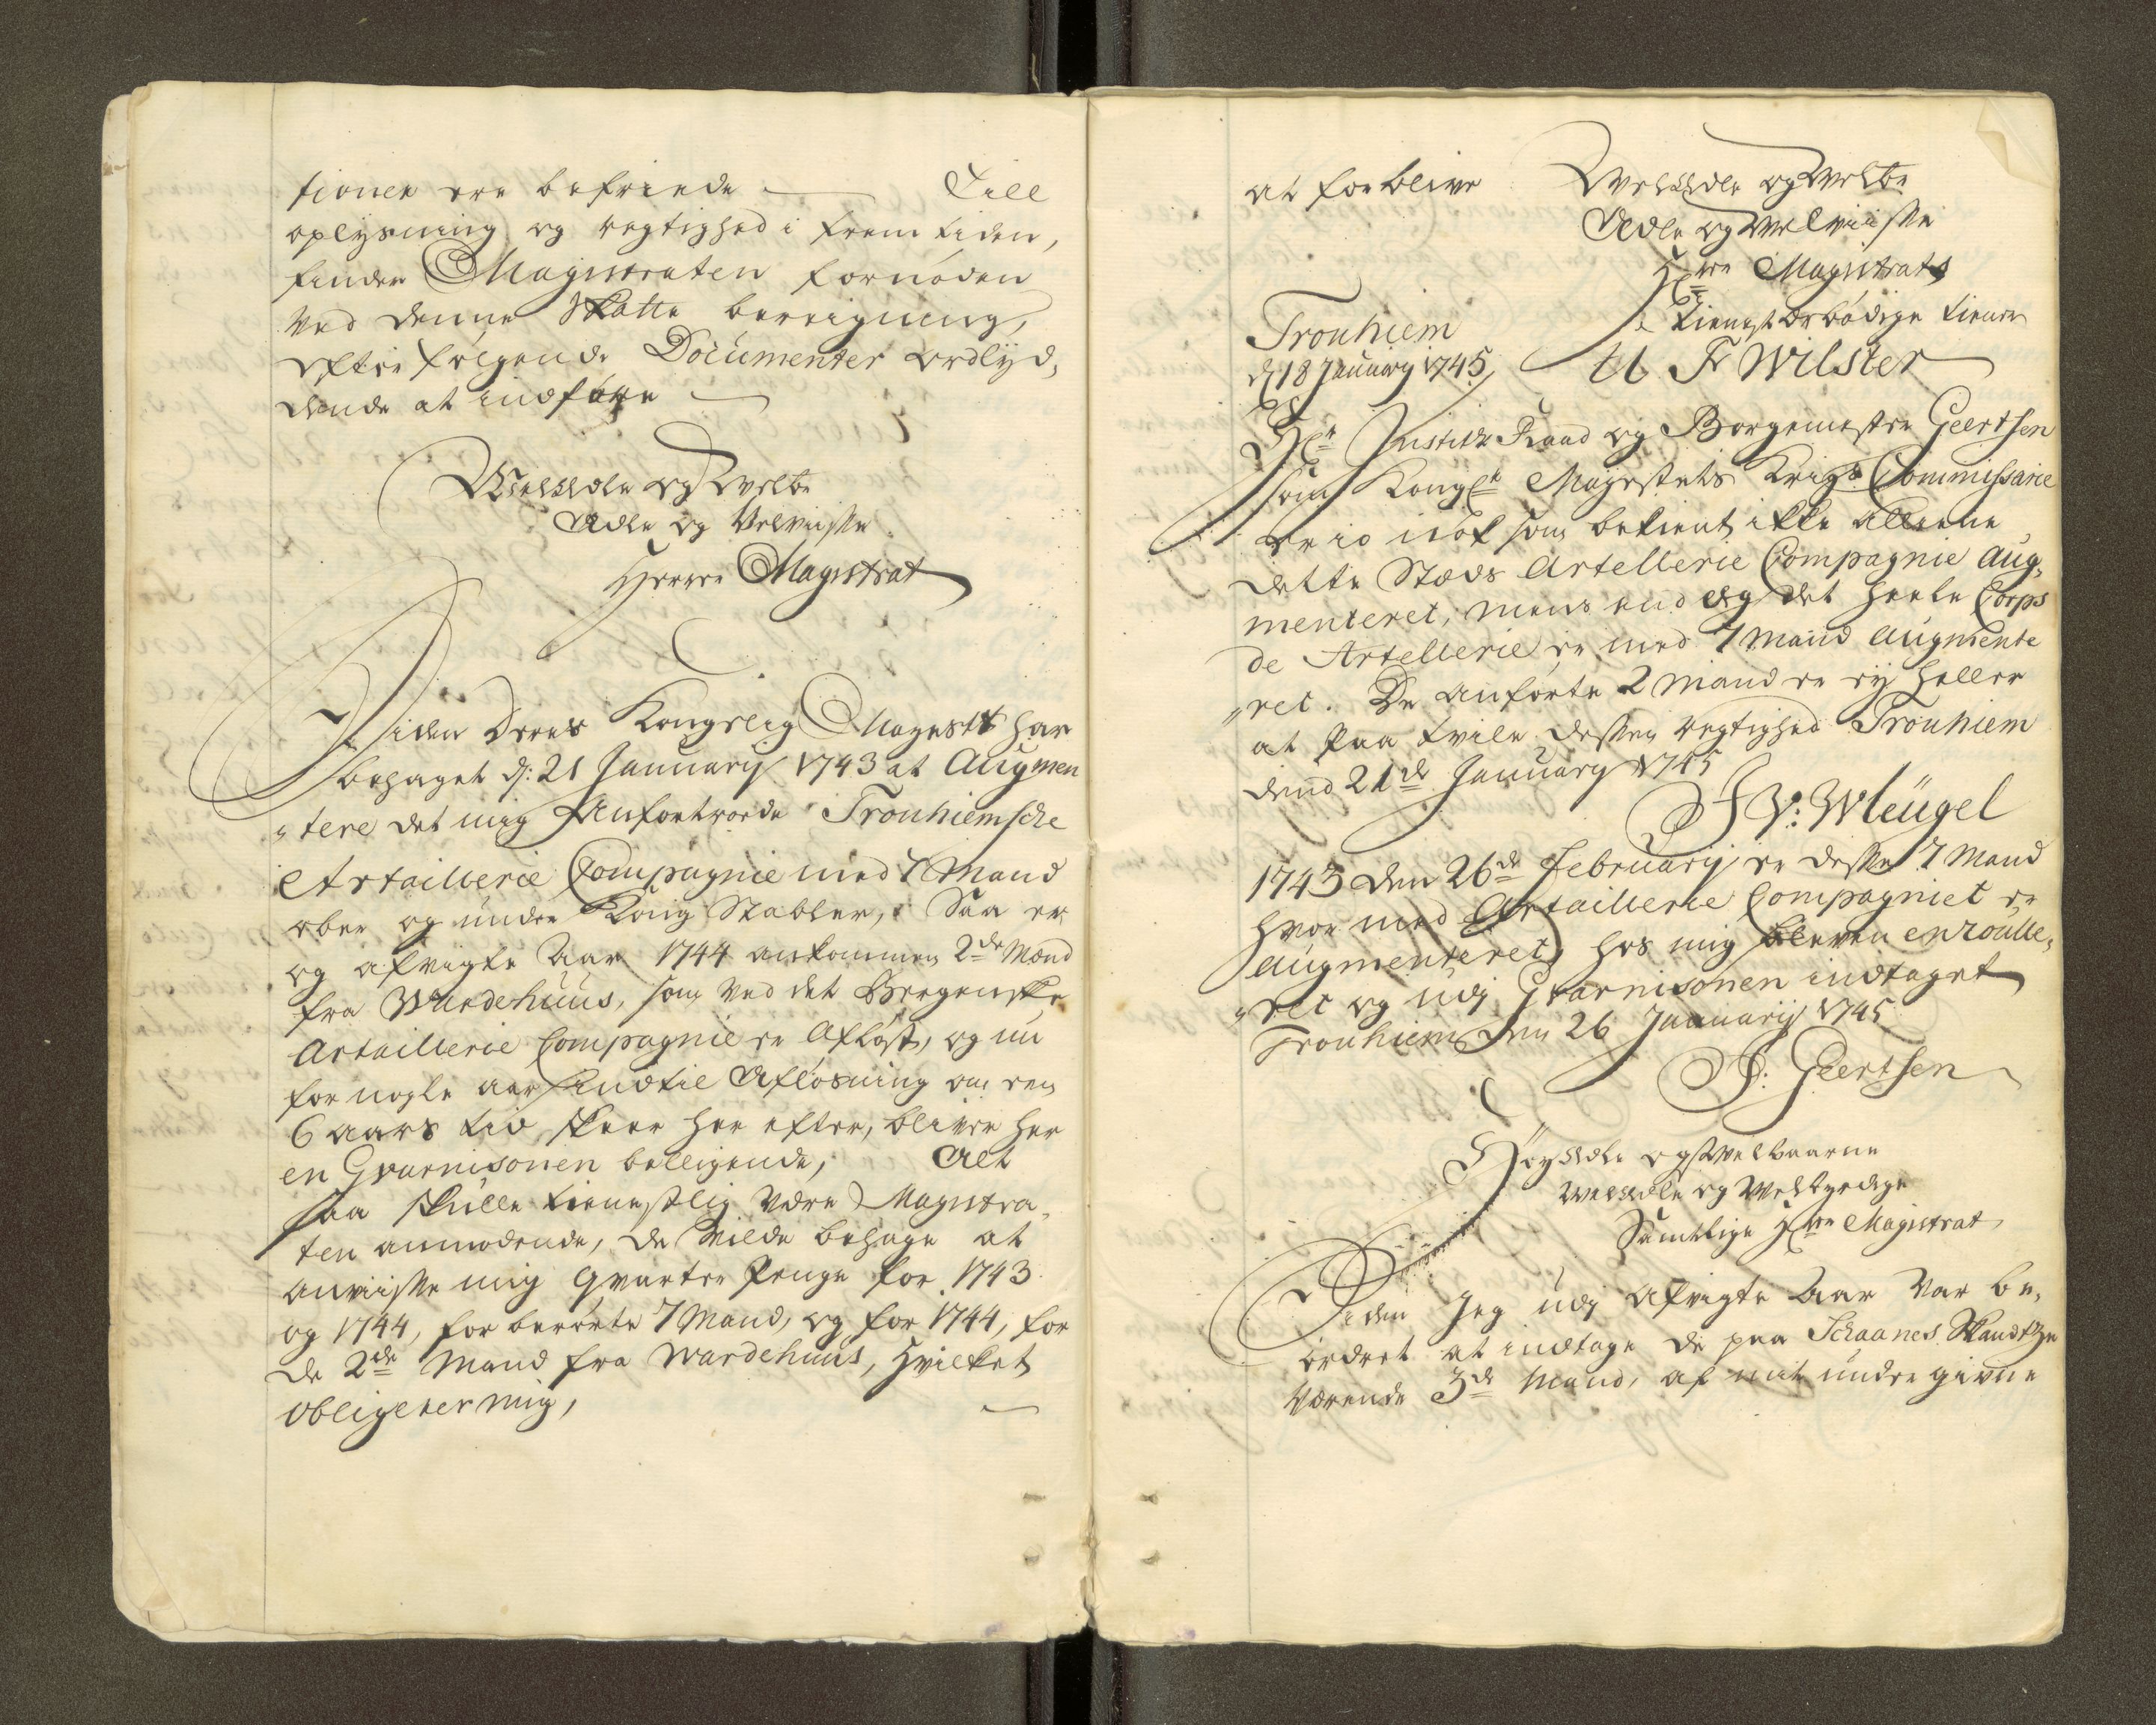 tionen ere befriede — Till
oplysning og rigtighed i frem tiden,
finder Magistraten fornøden
ved denne Skatte bereigning,
efterfølgende Documenter ordlyd,
dende at indføre —
WelEdle og Welbr
Ædle og Velviise
Herrer Magistrat
Siden Deres Kongelig Mayestt har
behaget d: 21 January 1743 at Augmen
"tere det mig Anfortroede Tronhiemsche
Artaillerie Compagnie med 7 Mand
ober og under Konstabler, Saa er
og afvigte Aar 1744 ankommen 2de Mænd
fra Wardehuus, som ved det Bergenske
Artaillerie Compagnie er Afløst, og nu
for nogle aar indtil Afløsning om een
6 aars tid skeer her efter, bliver her
en Gvarnisonen beliigende, Alt
saa skulle tienestlig være Magistra,
ten anmodende, de vilde behage at
anviise mig Qvarteer Penge for 1743
og 1744, for berørte 7 Mand, og for 1744, for
de 2de Mand fra Wardehuus, Hvilket
obligerer mig,
at forblive WelEdle og Welbr
Ædle og Velviise
Hrre Magistrats
tienstærbødige tiener
Tronhiem
d 18 January 1745. U Fr Wilster
Hr Justice Raad og Borgemester Geertsen
som Kongl Mayestets Krigs Commissarie
er io nok som bekient, ikke alleene
dette Stæds Artellerie Compagnie Aug,
menteret, mens end og det heele Corps
de Artellerie er med 7 Mand Augmente
"ret. De anførte 2 Mand er ey heller
at paa tvile desses rigtighed Tronhiem
dend 21de January 1745
J V: Wleügel
1743 den 26de February er disse 7 Mand
hvor med Artaillerie Compagniet er
Augmenteret, hos mig bleven enroulle,
"ret og udj Gvarnisonen indtaget
Tronhiem den 26 January 1745
J: Geertsen
HøyÆdle og Welbaarne
WelÆdle og Welbyrdige
Samtlige Hrre Magistrat
Siden Jeg udj afvigte Aar var be,
ordret at indtage de paa Schaanes Skandtze
værende 3de Mand, af mit under givne